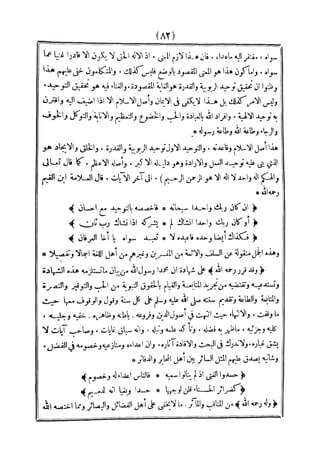 (٨٢)
سواه . مفتقر اليه ماعداه . فان هذا لازم المعنى . اذ الاله الحق لا يكون الا قادرا غنيا عما
سواه . واما كون هذا هو المعنى المقصود بالوضع فليس كذلك . والمتكلمون خفي عليهم هذا
وظنوا ان تحقيق توحيد الربوبية والقدرة هو الغاية المقصودة . والفناء فيه هو تحقيق التوحيد.
وليس الامر كذلك بل هذا لا يكفى فى الايمان وأصل الاسلام الا اذا اضيف اليه واقترن
به توحيد الالهية . وافراد الله بالعبادة والحب والخضوع والتعظيم والانابة والتوكل والخوف
والرجاء وطاعة الله وطاعة رسوله *
هذا أصل الاسلام وقاعدته . والتوحيد الاول توحيد الربوبية والقدرة . والخلق والايجاد هو
الذي بنى عليه توحيد العمل والارادة وهو دليله الاكبر . وأصله الاعظم . كما قال تعالى
(والهكم اله واحد لا اله الا هو الرحمن الرحيم) . الى آخر الآيات . قال العلامة ابن القيم
رحمه الله *
ان كان ربك واحدا سبحانه * فاخصصه بالتوحيد مع احسان
أو كان ربك واحدا انشاك لم * يشركه اذا نشاك رب ثان
فكذاك أيضا وحده فاعبده لا * تعبد سواه يا أخا العرفان
وهذه الجمل منقولة عن السلف والائمة من المفسرين وغيرهم من أهل اللغة اجمالا وتفصيلا *
ولقد قرر رحمه الله على شهادة ان محمدا رسول الله من بيان ماتستلزمه هذه الشهادة
وتستدعيه وتقتضيه من تجريد المتابعة والقيام بالحقوق النبوية من الحب والتوقير والنصرة
والمتابعة والطاعة وتقديم سنته صلى الله عليه وسلم على كل سنة وقول والوقوف معها حيث
ما وقفت . والانتهاء حيث انتهت في أصول الدين وفروعه . باطنه وظاهره . خفيه وجليه .
كليه وجزئيه . ماظهر به فضله . وتأكد علمه ونبله . وانه سباق غايات . وصاحب آيات لا
يشق غباره. ولا تدرك فى البحث والافادة آثاره. وان اعداءه ومنازعيه وخصومه في الفضل.
وشانيه يصدق عليهم المثل السائر بين أهل المحابر والدفاتر *
حسدوا الفتى اذ لم ينالوا سعيه * فالناس اعداء له وخصوم
كضرائر الحسناء قلن لوجهها * حسدا وبغيا انه لدميم
وله رحمه الله من المناقب والمآثر. ما لا يخفى على أهل الفضائل والبصائر ومما اختصه الله